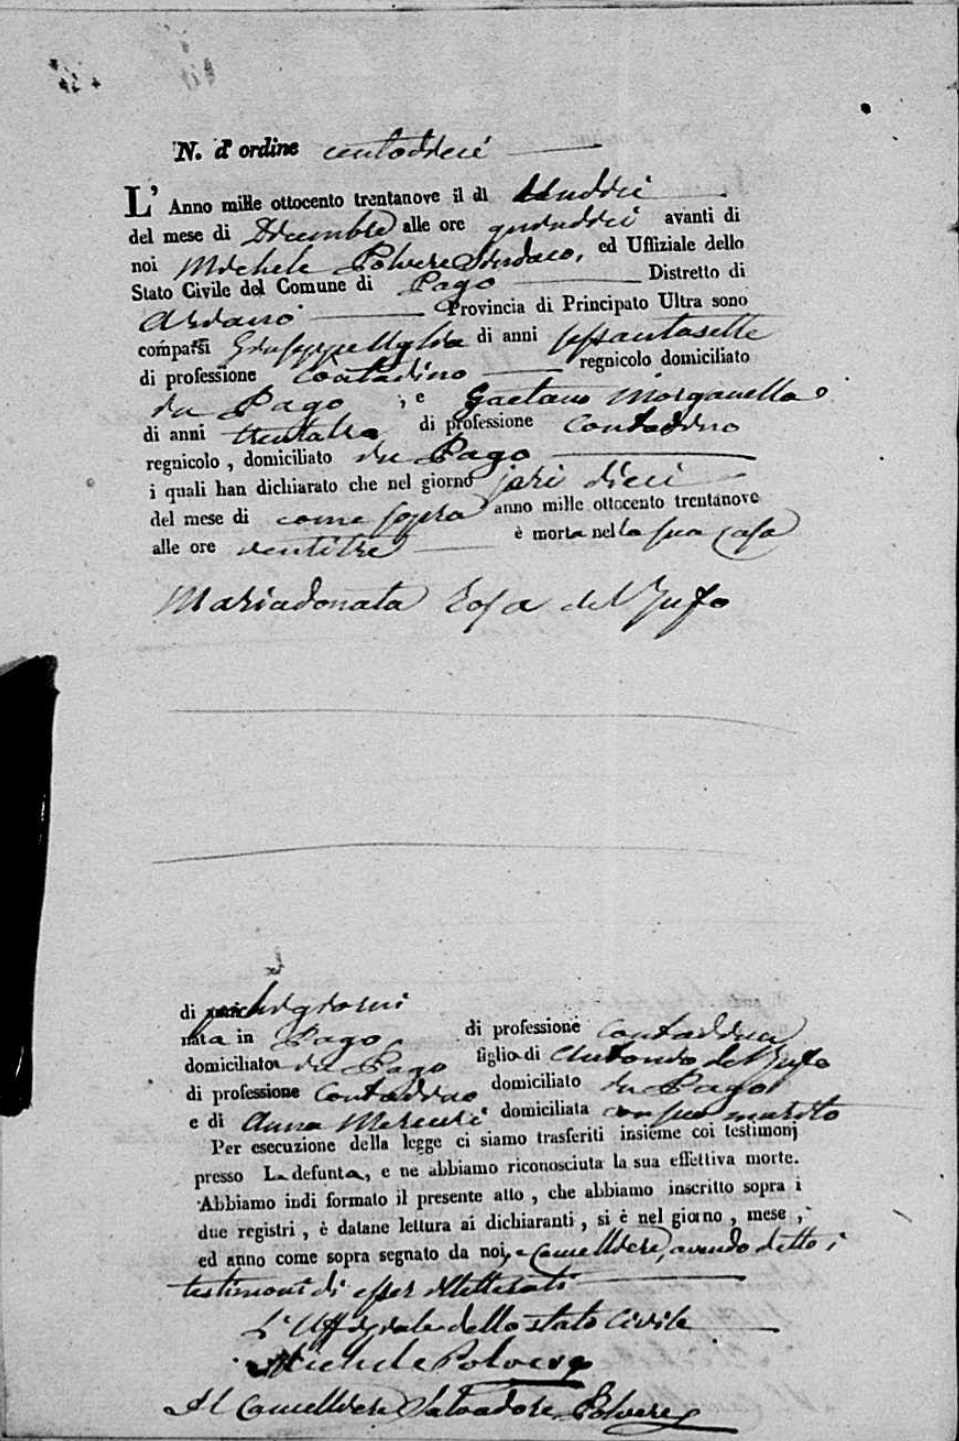 N. d'ordine centodieci
L'Anno mille ottocento trentanove il dì undici
del mese di Decembre alle ore quindici avanti di
noi Michele Polvere Sindaco, ed Uffiziale dello
Stato Civile del Comune di Pago Distretto di
Ariano Provincia di Principato Ultra sono
comparsi Giuseppe di anni sessantasette
di professione contadino regnicolo domiciliato
in Pago, e Gaetano Morganella
di anni trentatre di professione contadino
regnicolo, domiciliato in Pago
i quali han dichiarato che nel giorno jeri dieci
del mese di come sopra anno mille ottocento trentanove
alle ore ventitre è morta nella sua casa
Mariadonata Rosa del Bufo
di giorni
nata in Pago di professione contadina
domiciliata in Pago figlia di Antonio del Bufo
di professione contadino domiciliato in Pago
e di Anna Mercuri domiciliata con suo marito
Per esecuzione della legge ci siamo trasferiti insieme coi testimonj
presso La defunta, e ne abbiamo riconosciuta la sua effettiva morte.
Abbiamo indi formato il presente atto, che abbiamo inscritto sopra i
due registri, è datane lettura ai dichiaranti, si è nel giorno, mese,
ed anno come sopra segnato da noi, e Cancelliere, avendo detto i
testimoni di esser illetterati
L'Uffiziale dello stato Civile
Michele Polvere
Il Cancelliere Salvadore Polvere